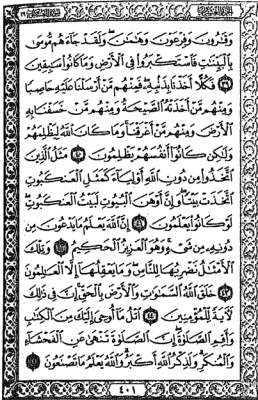 وَقَٰرُونَ وَفِرْعَوْنَ وَهَٰمَٰنَ ۖ وَلَقَدْ جَآءَهُم مُّوسَىٰ
بِٱلْبَيِّنَٰتِ فَٱسْتَكْبَرُوا۟ فِى ٱلْأَرْضِ وَمَا كَانُوا۟ سَٰبِقِينَ
٣٩ فَكُلًّا أَخَذْنَا بِذَنۢبِهِۦ ۖ فَمِنْهُم مَّنْ أَرْسَلْنَا عَلَيْهِ حَاصِبًا
وَمِنْهُم مَّنْ أَخَذَتْهُ ٱلصَّيْحَةُ وَمِنْهُم مَّنْ خَسَفْنَا بِهِ
ٱلْأَرْضَ وَمِنْهُم مَّنْ أَغْرَقْنَا ۚ وَمَا كَانَ ٱللَّهُ لِيَظْلِمَهُمْ
وَلَٰكِن كَانُوٓا۟ أَنفُسَهُمْ يَظْلِمُونَ ٤٠ مَثَلُ ٱلَّذِينَ
ٱتَّخَذُوا۟ مِن دُونِ ٱللَّهِ أَوْلِيَآءَ كَمَثَلِ ٱلْعَنكَبُوتِ
ٱتَّخَذَتْ بَيْتًا ۖ وَإِنَّ أَوْهَنَ ٱلْبُيُوتِ لَبَيْتُ ٱلْعَنكَبُوتِ ۖ
لَوْ كَانُوا۟ يَعْلَمُونَ ٤١ إِنَّ ٱللَّهَ يَعْلَمُ مَا يَدْعُونَ مِن
دُونِهِۦ مِن شَىْءٍ ۚ وَهُوَ ٱلْعَزِيزُ ٱلْحَكِيمُ ٤٢ وَتِلْكَ
ٱلْأَمْثَٰلُ نَضْرِبُهَا لِلنَّاسِ ۖ وَمَا يَعْقِلُهَآ إِلَّا ٱلْعَٰلِمُونَ
٤٣ خَلَقَ ٱللَّهُ ٱلسَّمَٰوَٰتِ وَٱلْأَرْضَ بِٱلْحَقِّ ۚ إِنَّ فِى ذَٰلِكَ
لَءَايَةً لِّلْمُؤْمِنِينَ ٤٤ ٱتْلُ مَآ أُوحِىَ إِلَيْكَ مِنَ ٱلْكِتَٰبِ
وَأَقِمِ ٱلصَّلَوٰةَ ۖ إِنَّ ٱلصَّلَوٰةَ تَنْهَىٰ عَنِ ٱلْفَحْشَآءِ
وَٱلْمُنكَرِ ۗ وَلَذِكْرُ ٱللَّهِ أَكْبَرُ ۗ وَٱللَّهُ يَعْلَمُ مَا تَصْنَعُونَ ٤٥
٤٠١